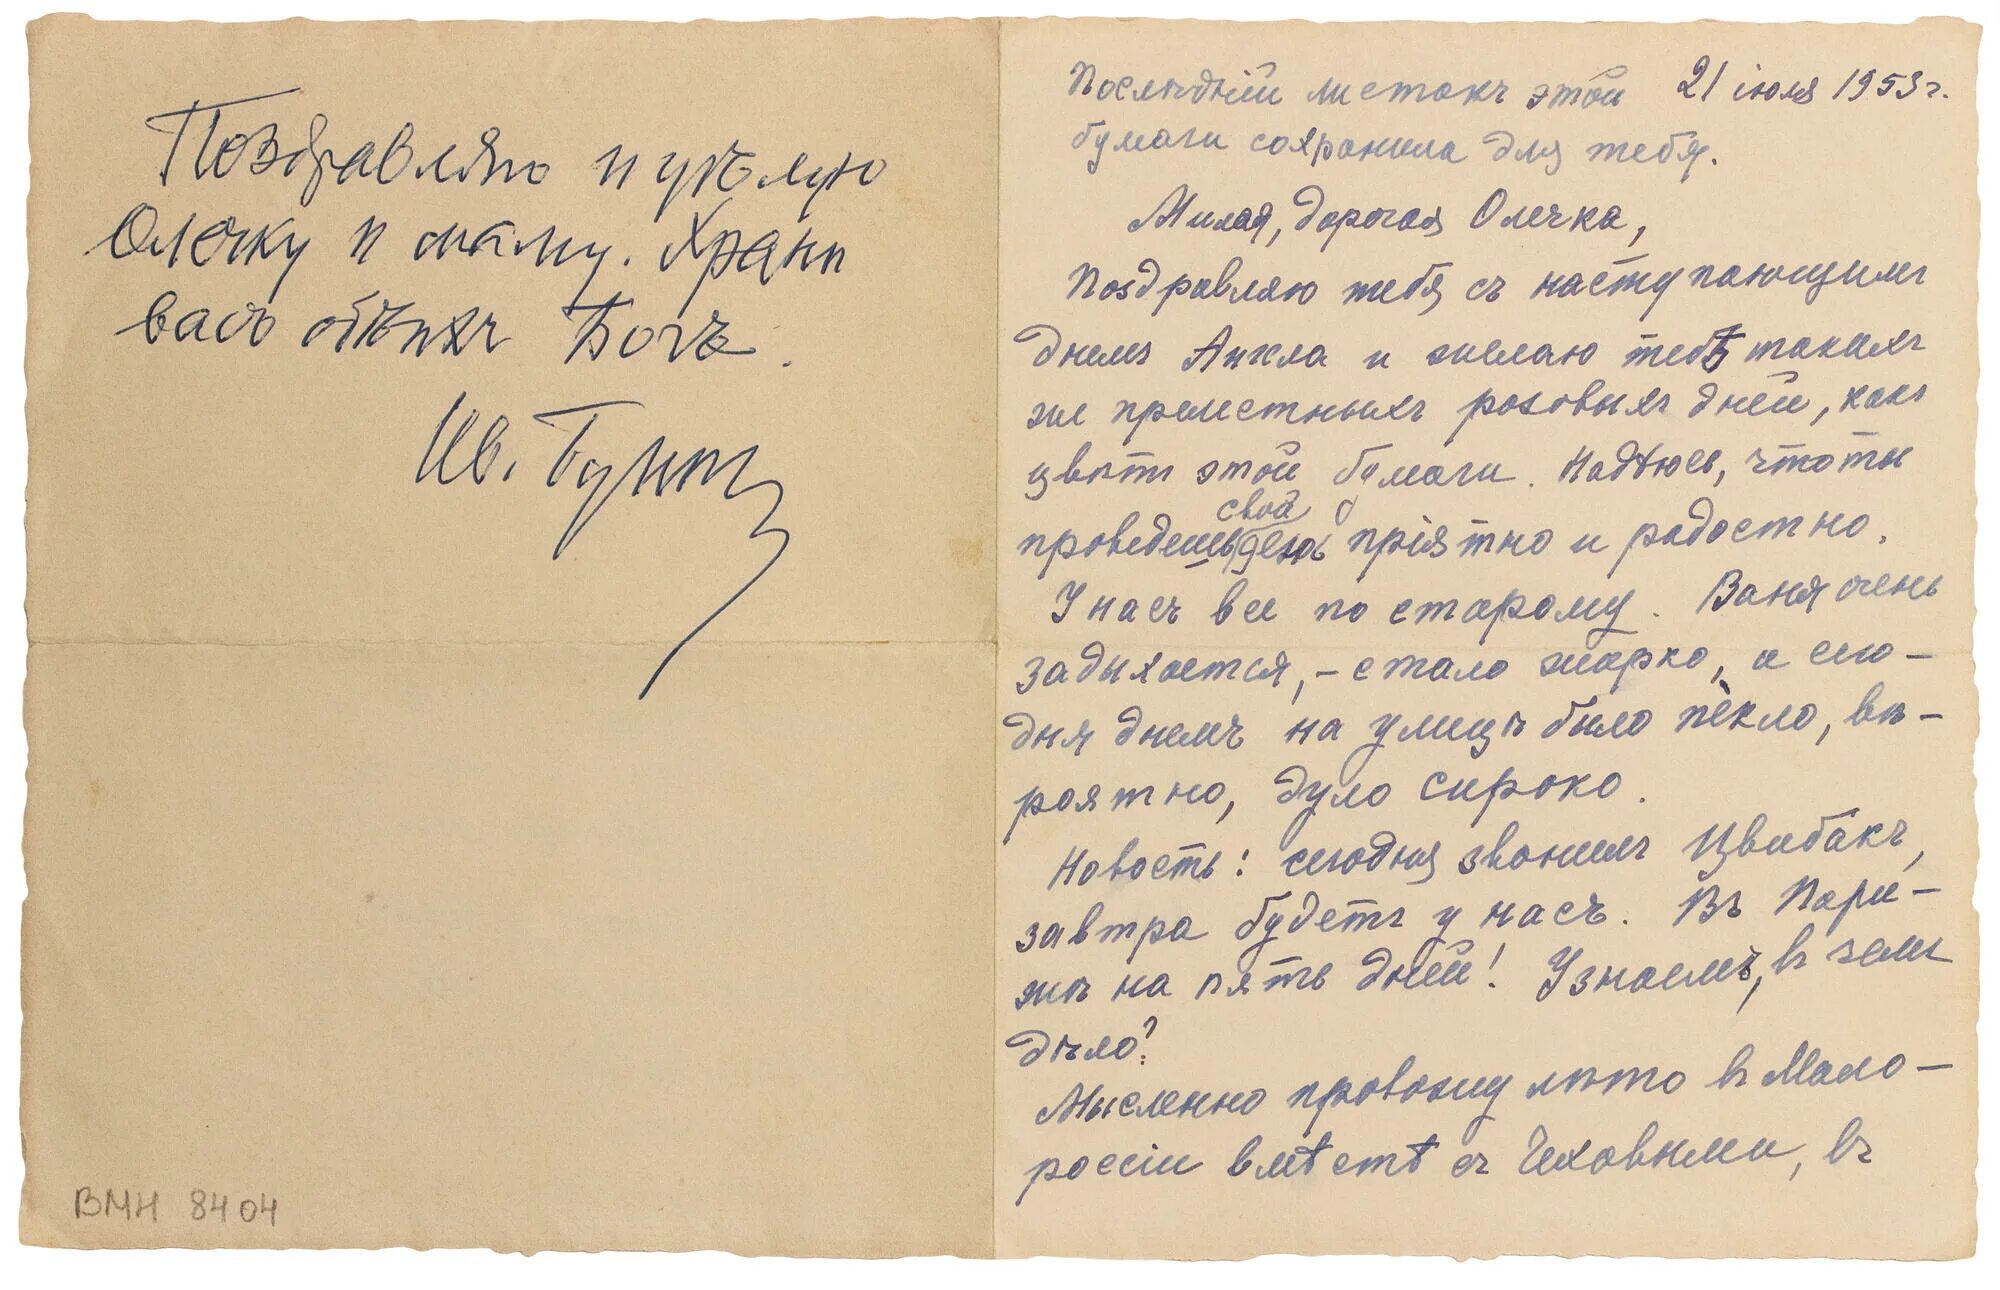 Поздравляю и цѣлую
Олечку и маму. Храни
васъ обѣихъ Богъ.
Ив. Бунин
ВМН 8404
Послѣдній листокъ этой 21 іюля 1953 г.
бумаги сохранила для тебя.
Милая, дорогая Олечка,
Поздравляю тебя съ наступающимъ
днемъ Ангела и желаю тебѣ такихъ
же прелестныхъ розовыхъ дней, какъ
цвѣтъ этой бумаги. Надѣюсь, что ты
свой
проведешь день пріятно и радостно.
У насъ все по старому. Ваня очень
задыхается, – стало жарко, а сего–
дня днемъ на улицѣ было пекло, вѣ–
роятно, дуло сироко.
Новость: сегодня звонилъ Цвибакъ,
завтра будетъ у насъ. Въ Пари–
жѣ на пять дней! Узнаемъ, въ чемъ
дѣло?
Мысленно провожу лѣто въ Мало–
россіи вмѣстѣ съ Чеховыми, въ